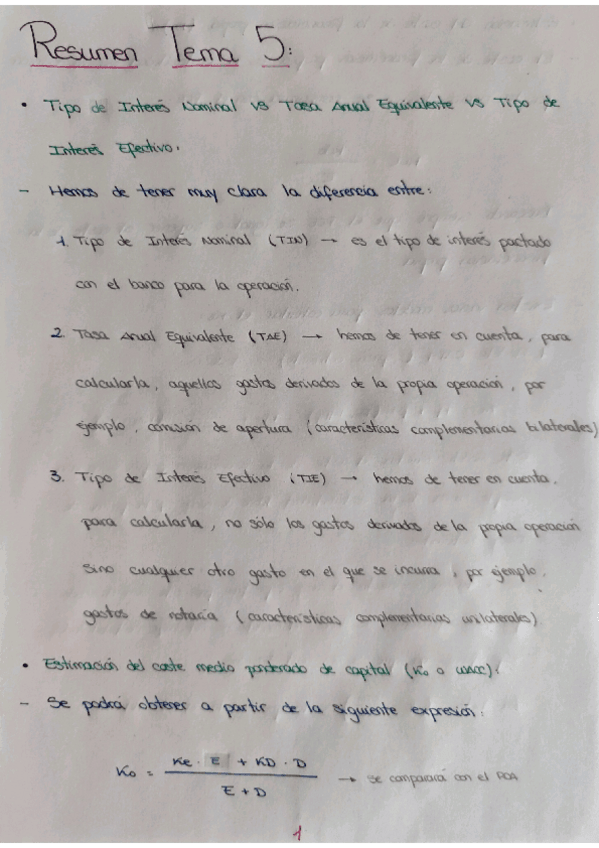 Resumen Tema 5:
• Tipo de Interés Nominal vs Tasa Anual Equivalente vs Tipo de
Interés Efectivo.
- Hemos de tener muy clara la diferencia entre:
1. Tipo de Interés Nominal (TIN) → es el tipo de interés pactado
con el banco para la operación.
2. Tasa Anual Equivalente (TAE) → hemos de tener en cuenta, para
calcularla, aquellos gastos derivados de la propia operación, por
ejemplo, comisión de apertura (características complementarias bilaterales)
3. Tipo de Interés Efectivo (TIE) → hemos de tener en cuenta,
para calcularla, no sólo los gastos derivados de la propia operación
sino cualquier otro gasto en el que se incurra, por ejemplo,
gastos de notaría (características complementarias unilaterales)
• Estimación del coste medio ponderado de capital (Ko o WACC):
- Se podrá obtener a partir de la siguiente expresión:
Ko = Ke · E + KD · D / E + D → se comparará con el ROA
1